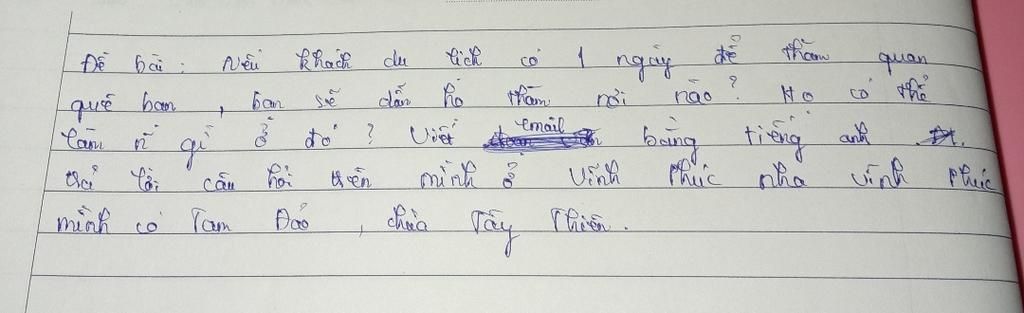 Đề bài : Nếu khách du lịch có 1 ngày để thăm quan
quê bạn , bạn sẽ dẫn họ thăm nơi nào ? Họ có thể
làm gì ở đó ? Viết email bằng tiếng anh
trả lời câu hỏi trên mình ở Vĩnh Phúc nha Vĩnh Phúc
mình có Tam Đảo , chùa Tây Thiên .